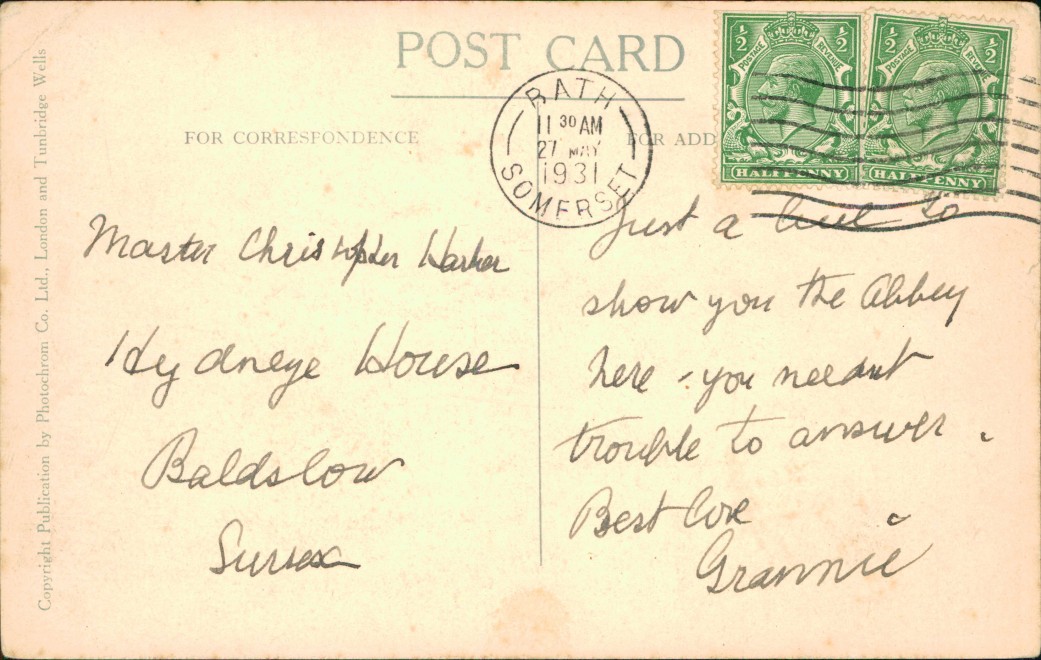 POST CARD
FOR CORRESPONDENCE
FOR ADD
BATH
11 30 AM
27 MAY
1931
SOMERSET
½ ½
POSTAGE REVENUE
HALFPENNY
½ ½
POSTAGE REVENUE
HALFPENNY
Copyright Publication by Photochrom Co. Ltd., London and Tunbridge Wells
Master Christopher
Hydneye House
Baldslow
Sussex
Just a to
show you the Abbey
here - you neednt
trouble to answer.
Best love
Grannie